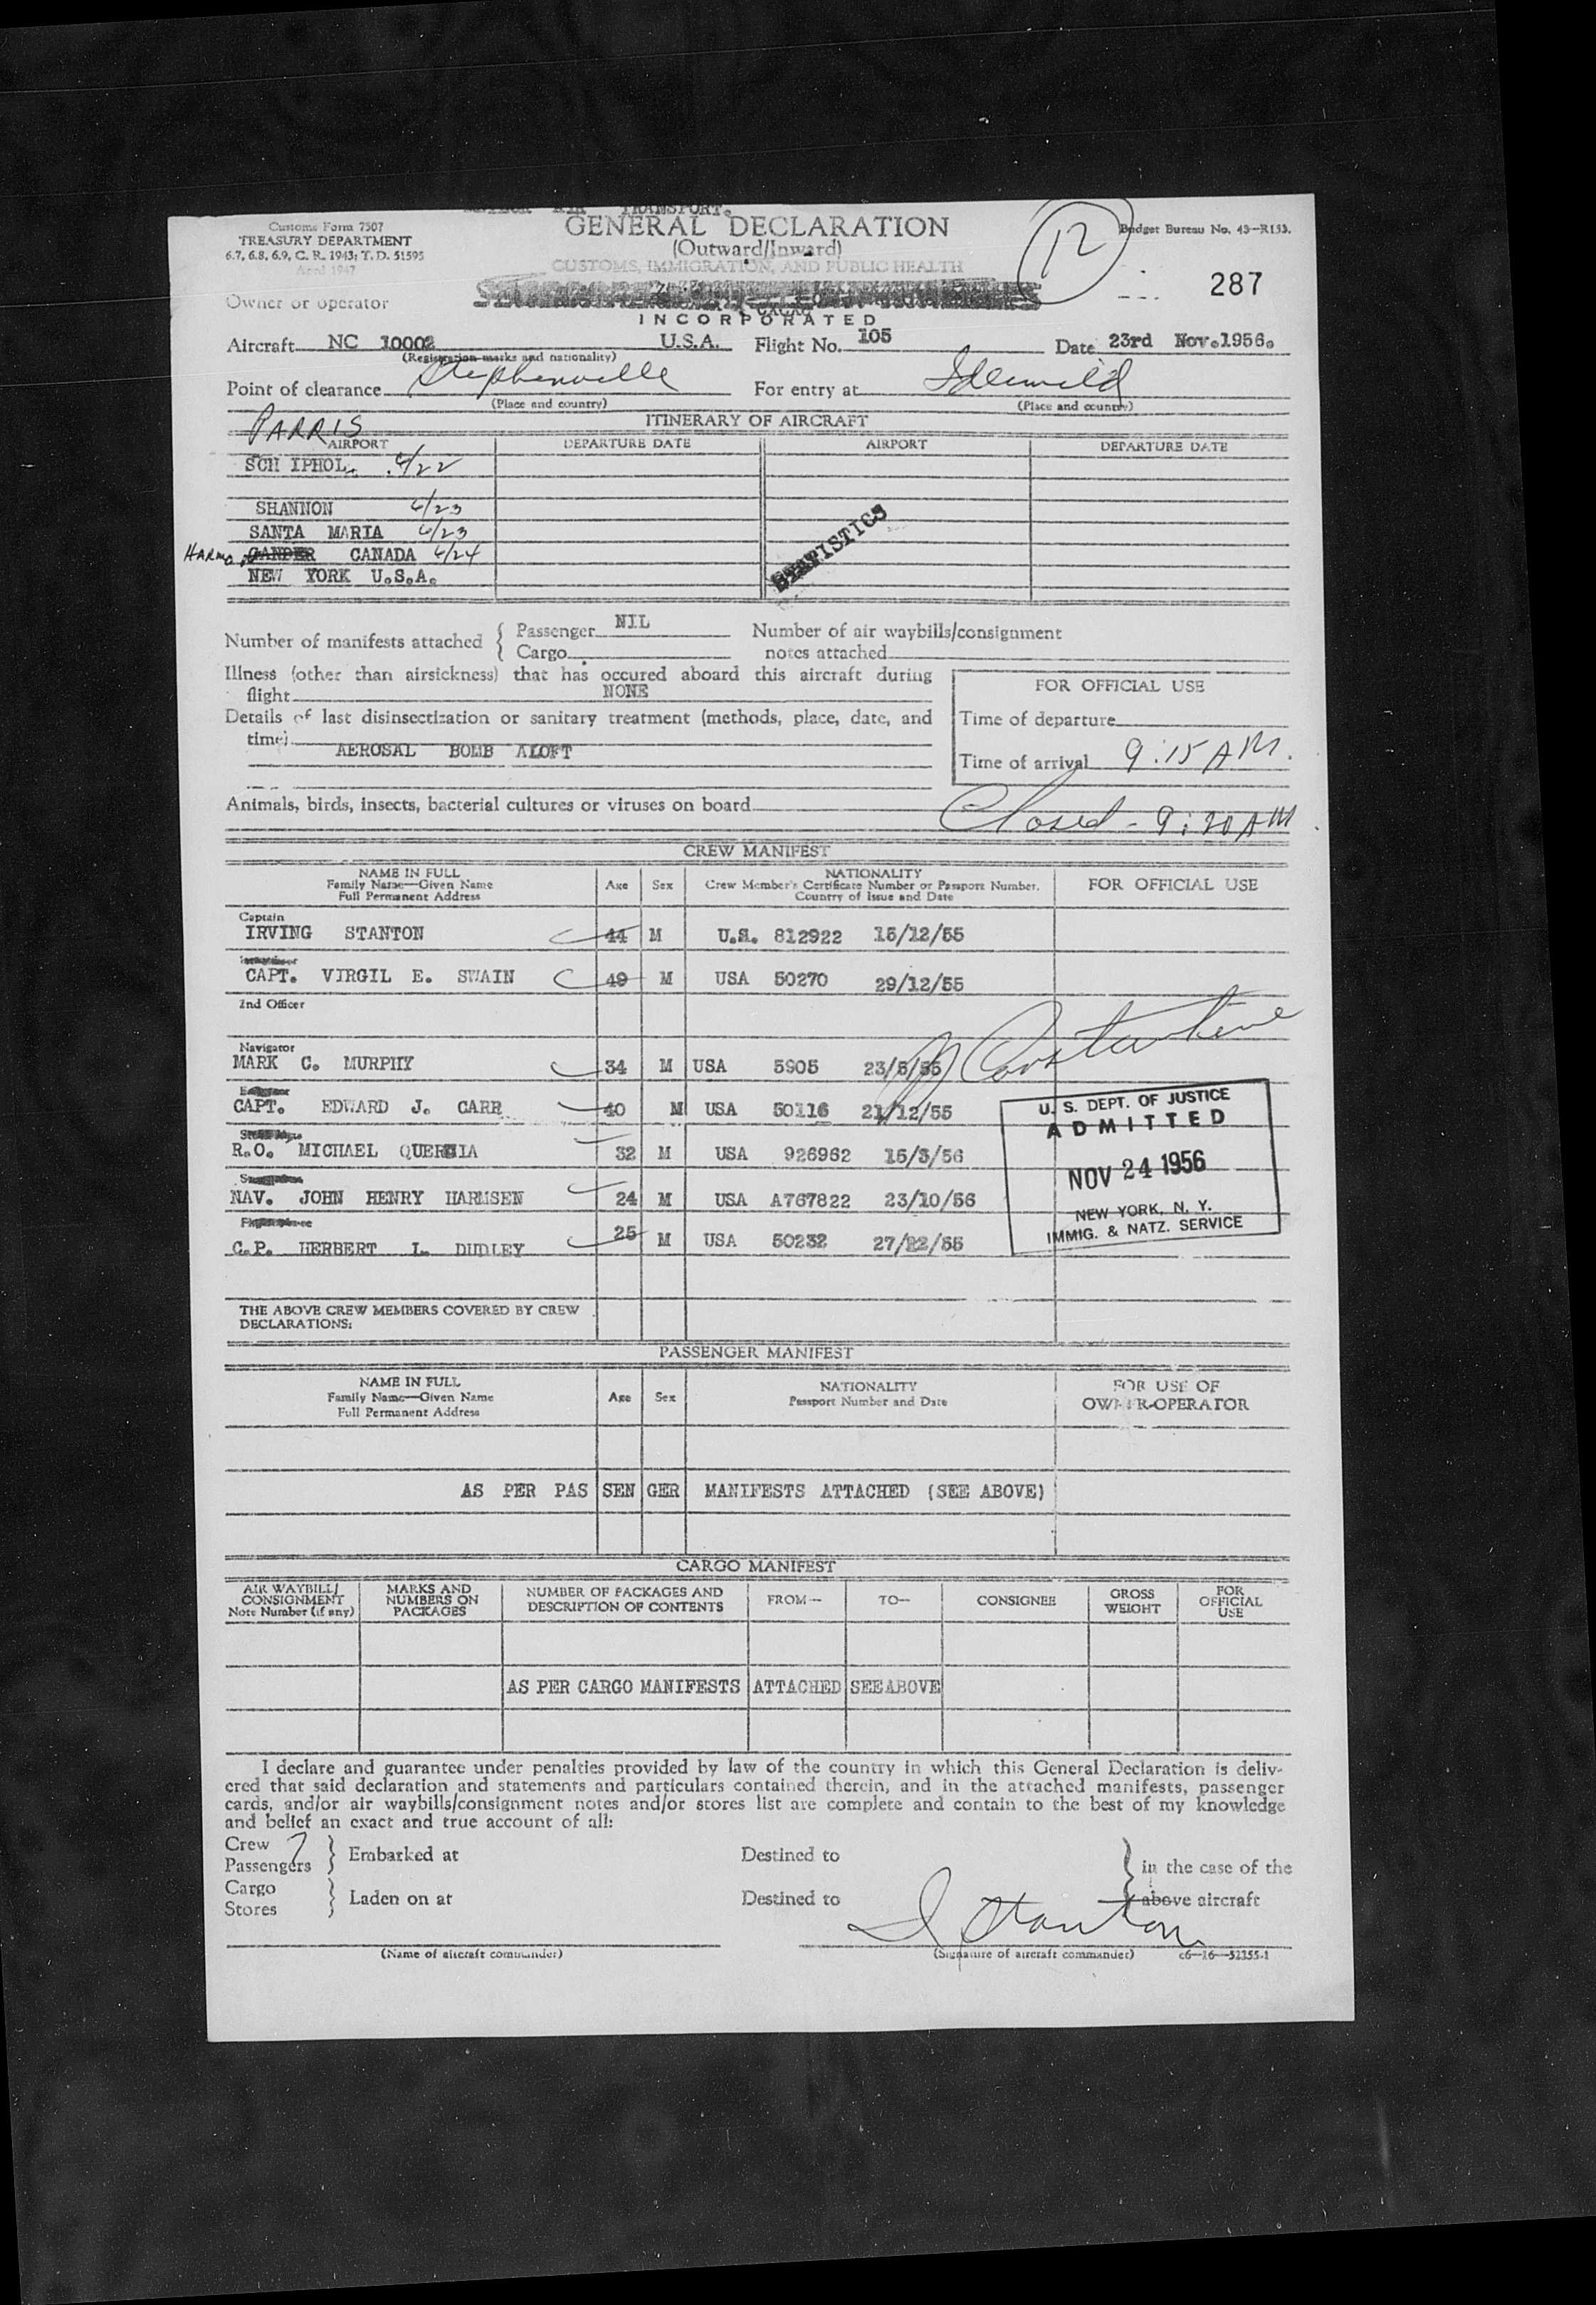 AIR TRANSPORT.
Customs Form 7507
TREASURY DEPARTMENT
6.7, 6.8, 6.9, C. R. 1943; T. D. 51595
April 1947
GENERAL DECLARATION
(Outward/Inward)
CUSTOMS, IMMIGRATION, AND PUBLIC HEALTH
12
Budget Bureau No. 43—R133.
287
Owner or operator
INCORPORATED
Aircraft NC 10002 U.S.A. Flight No. 105 Date 23rd Nov.1956.
(Registration marks and nationality)
Point of clearance Stephenville For entry at Idlewild
(Place and country) (Place and country)
ITINERARY OF AIRCRAFT
PARRIS
AIRPORT DEPARTURE DATE AIRPORT DEPARTURE DATE
SCH IPHOL. /22
SHANNON /23
SANTA MARIA /23
HARMO GANDER CANADA /24
NEW YORK U.S.A.
STATISTICS
Number of manifests attached { Passenger NIL Number of air waybills/consignment
Cargo notes attached
Illness (other than airsickness) that has occured aboard this aircraft during
flight NONE
FOR OFFICIAL USE
Details of last disinsectization or sanitary treatment (methods, place, date, and
time) AEROSAL BOMB ALOFT
Time of departure
Time of arrival 9:15 AM.
Animals, birds, insects, bacterial cultures or viruses on board
Closed - 9:30 AM
CREW MANIFEST
NAME IN FULL
Family Name—Given Name
Full Permanent Address
Age Sex
NATIONALITY
Crew Member's Certificate Number or Passport Number.
Country of Issue and Date
FOR OFFICIAL USE
Captain
IRVING STANTON 44 M U.S. 812922 15/12/55
CAPT. VIRGIL E. SWAIN 49 M USA 50270 29/12/55
2nd Officer
Navigator
MARK C. MURPHY 34 M USA 5905 23/5/55
CAPT. EDWARD J. CARR 40 M USA 50116 21/12/55
R.O. MICHAEL 32 M USA 926962 15/3/56
NAV. JOHN HENRY HARMSEN 24 M USA A767822 23/10/56
C.P. HERBERT L. DUDLEY 25 M USA 50232 27/12/55
U. S. DEPT. OF JUSTICE
ADMITTED
NOV 24 1956
NEW YORK, N. Y.
IMMIG. & NATZ. SERVICE
THE ABOVE CREW MEMBERS COVERED BY CREW
DECLARATIONS:
PASSENGER MANIFEST
NAME IN FULL
Family Name—Given Name
Full Permanent Address
Age Sex
NATIONALITY
Passport Number and Date
FOR USE OF
OWNER-OPERATOR
AS PER PAS SEN GER MANIFESTS ATTACHED (SEE ABOVE)
CARGO MANIFEST
AIR WAYBILL/
CONSIGNMENT
Note Number (if any)
MARKS AND
NUMBERS ON
PACKAGES
NUMBER OF PACKAGES AND
DESCRIPTION OF CONTENTS
FROM—
TO—
CONSIGNEE
GROSS
WEIGHT
FOR
OFFICIAL
USE
AS PER CARGO MANIFESTS ATTACHED SEE ABOVE
I declare and guarantee under penalties provided by law of the country in which this General Declaration is deliv-
ered that said declaration and statements and particulars contained therein, and in the attached manifests, passenger
cards, and/or air waybills/consignment notes and/or stores list are complete and contain to the best of my knowledge
and belief an exact and true account of all:
Crew 7
Passengers } Embarked at Destined to } in the case of the
Cargo
Stores } Laden on at Destined to above aircraft
I Stanton
(Name of aircraft commander) (Signature of aircraft commander) c6—16—52355-1